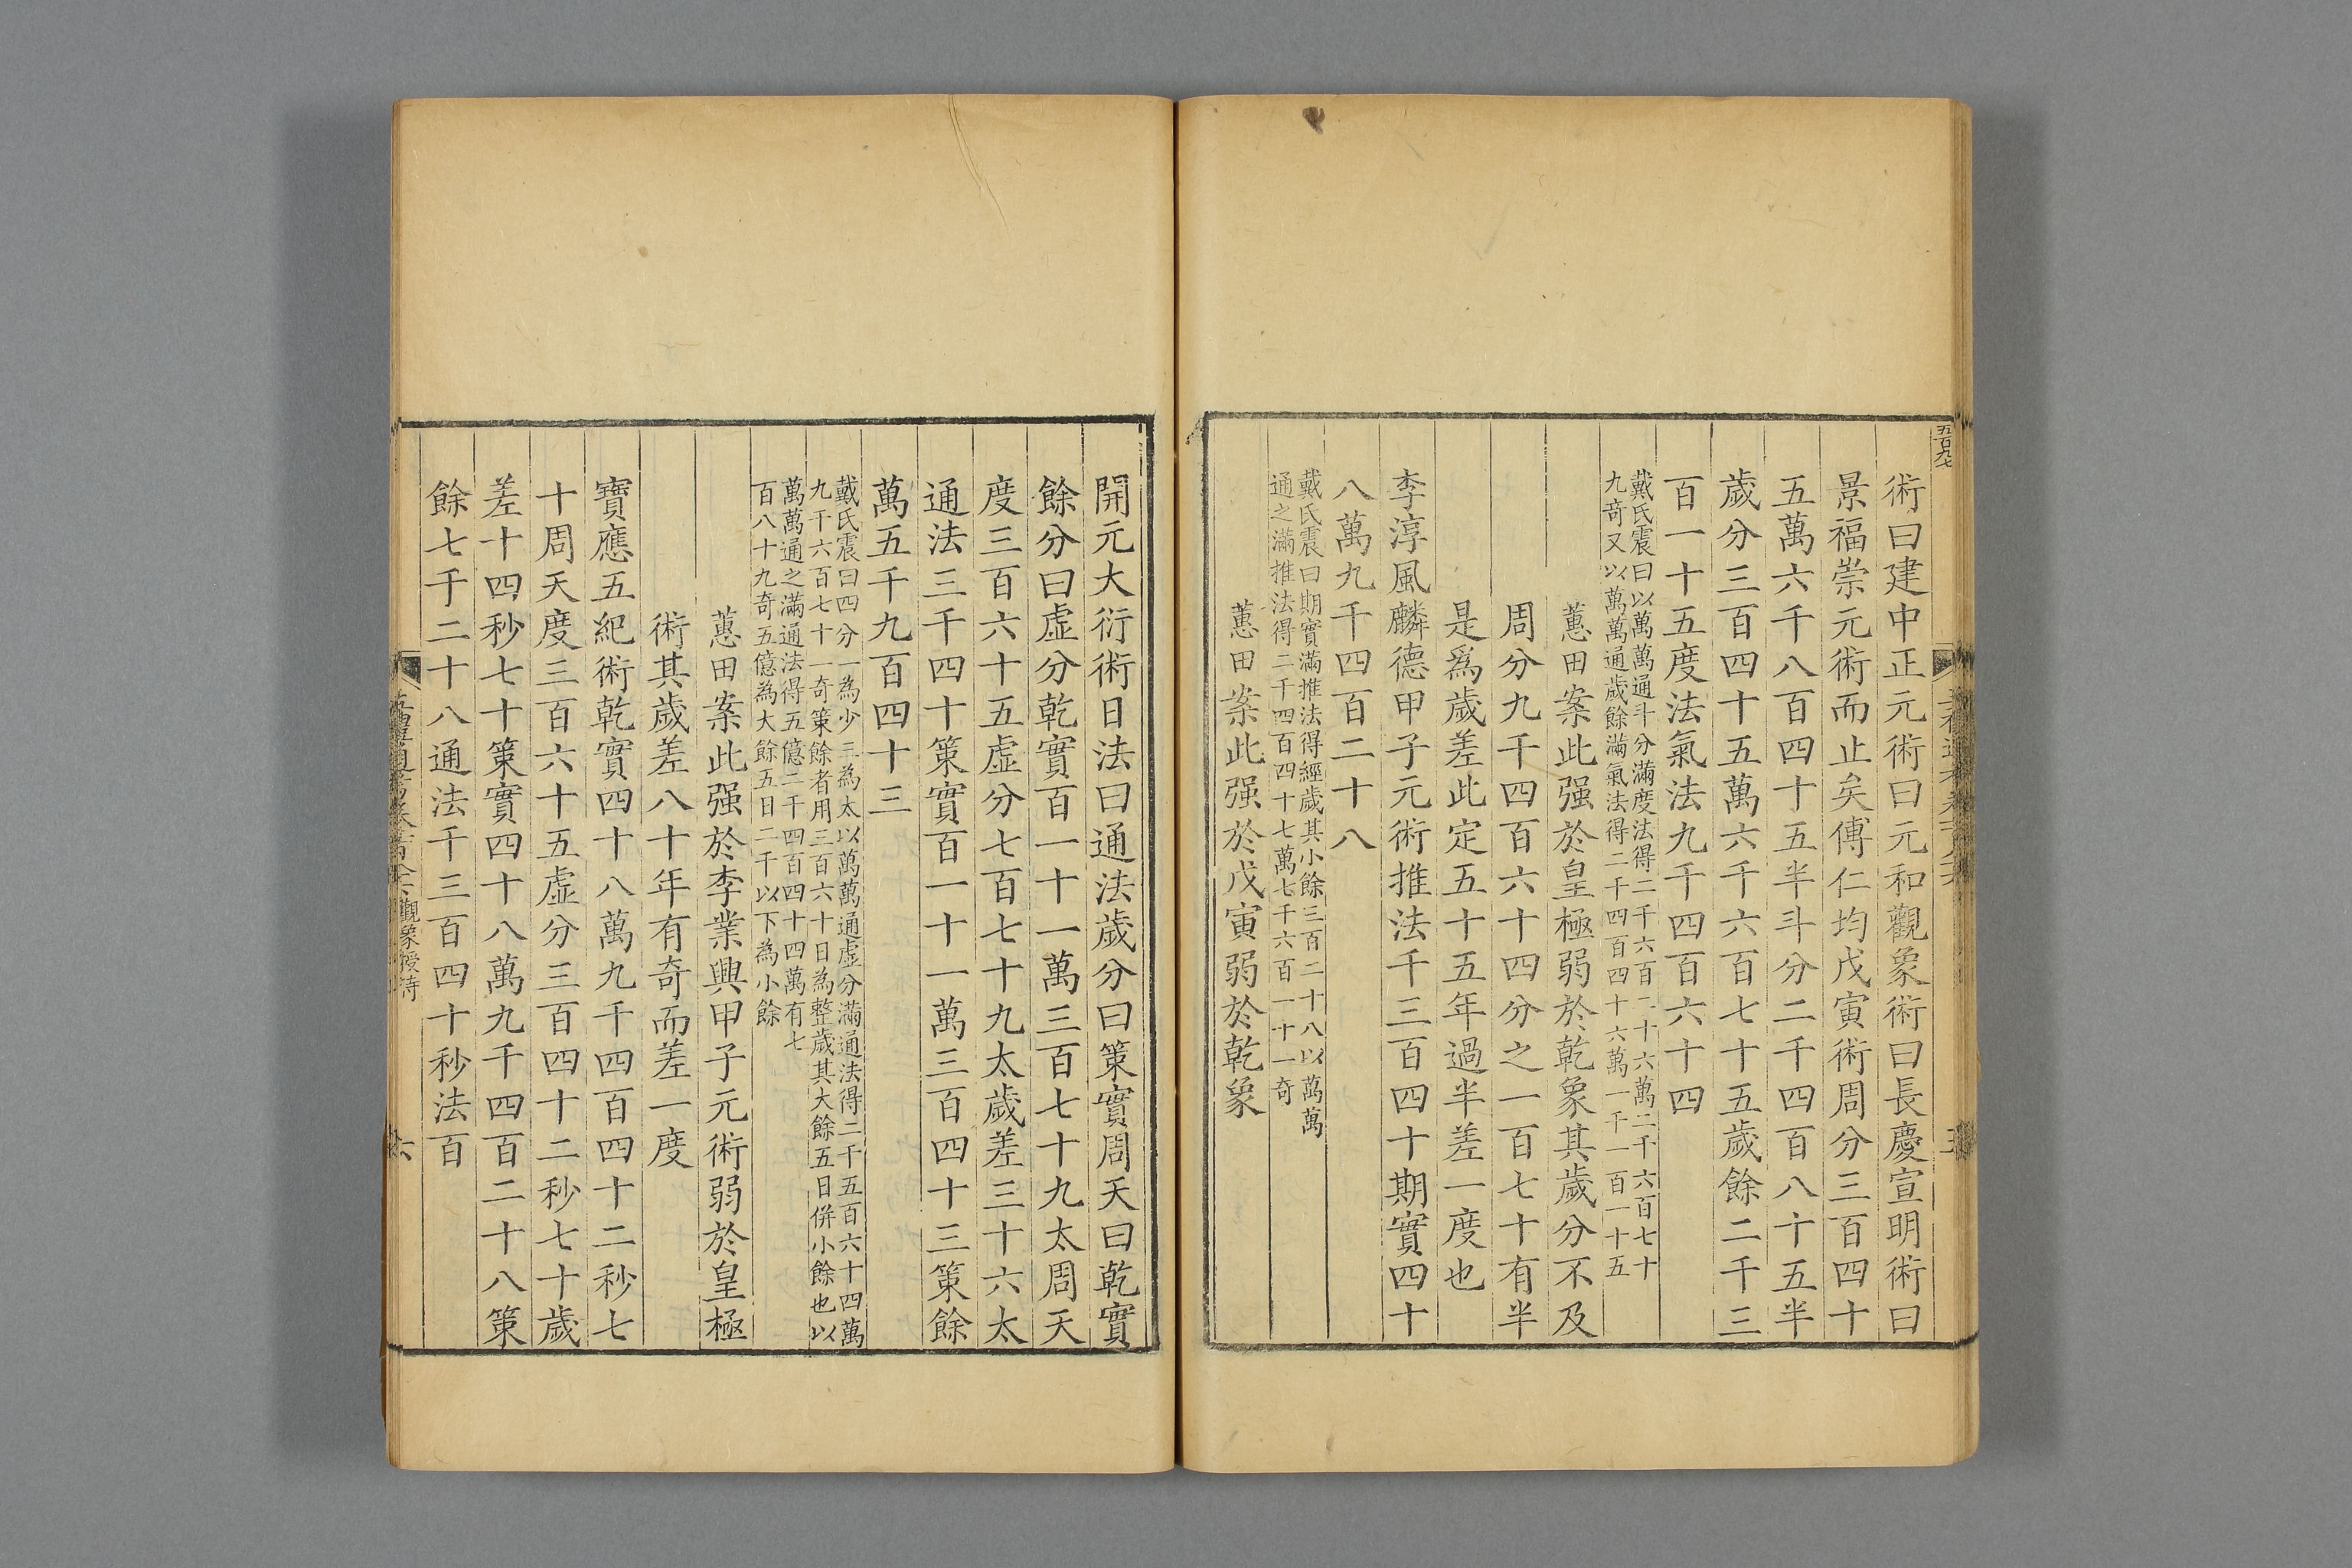 五百九七
術曰建中正元術曰元和觀象術曰長慶宣明術曰
景福崇元術而止矣傅仁均戊寅術周分三百四十
五萬六千八百四十五半斗分二千四百八十五半
歲分三百四十五萬六千六百七十五歲餘二千三
百一十五度法氣法九千四百六十四
戴氏震曰以萬萬通斗分滿度法得二千六百二十六萬二千六百七十
九奇又以萬萬通歲餘滿氣法得二千四百四十六萬一千一百一十五
蕙田案此强於皇極弱於乾象其歲分不及
周分九千四百六十四分之一百七十有半
是爲歲差此定五十五年過半差一度也
李淳風麟德甲子元術推法千三百四十期實四十
八萬九千四百二十八
戴氏震曰期實滿推法得經歲其小餘三百二十八以萬萬
通之滿推法得二千四百四十七萬七千六百一十一奇
蕙田案此强於戊寅弱於乾象
開元大衍術日法曰通法歲分曰策實周天曰乾實
餘分曰虛分乾實百一十一萬三百七十九太周天
度三百六十五虛分七百七十九太歲差三十六太
通法三千四十策實百一十一萬三百四十三策餘
萬五千九百四十三
戴氏震曰四分一為少三為太以萬萬通虛分滿通法得二千五百六十四萬
九千六百七十一奇策餘者用三百六十日為整歲其大餘五日併小餘也以
萬萬通之滿通法得五億二千四百四十四萬有七
百八十九奇五億為大餘五日二千以下為小餘
蕙田案此强於李業興甲子元術弱於皇極
術其歲差八十年有奇而差一度
寶應五紀術乾實四十八萬九千四百四十二秒七
十周天度三百六十五虛分三百四十二秒七十歲
差十四秒七十策實四十八萬九千四百二十八策
餘七千二十八通法千三百四十秒法百
觀象授時